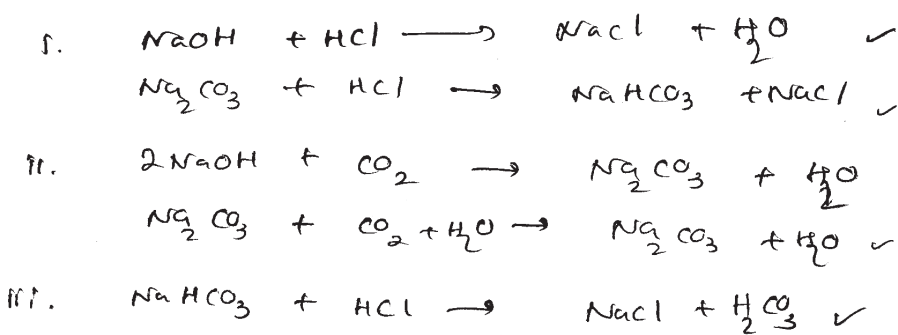 i. NaOH + HCl → NaCl + H₂O ✓
Na₂CO₃ + HCl → NaHCO₃ + NaCl ✓
ii. 2NaOH + CO₂ → Na₂CO₃ + H₂O
Na₂CO₃ + CO₂ + H₂O → Na₂CO₃ + H₂O ✓
iii. NaHCO₃ + HCl → NaCl + H₂CO₃ ✓